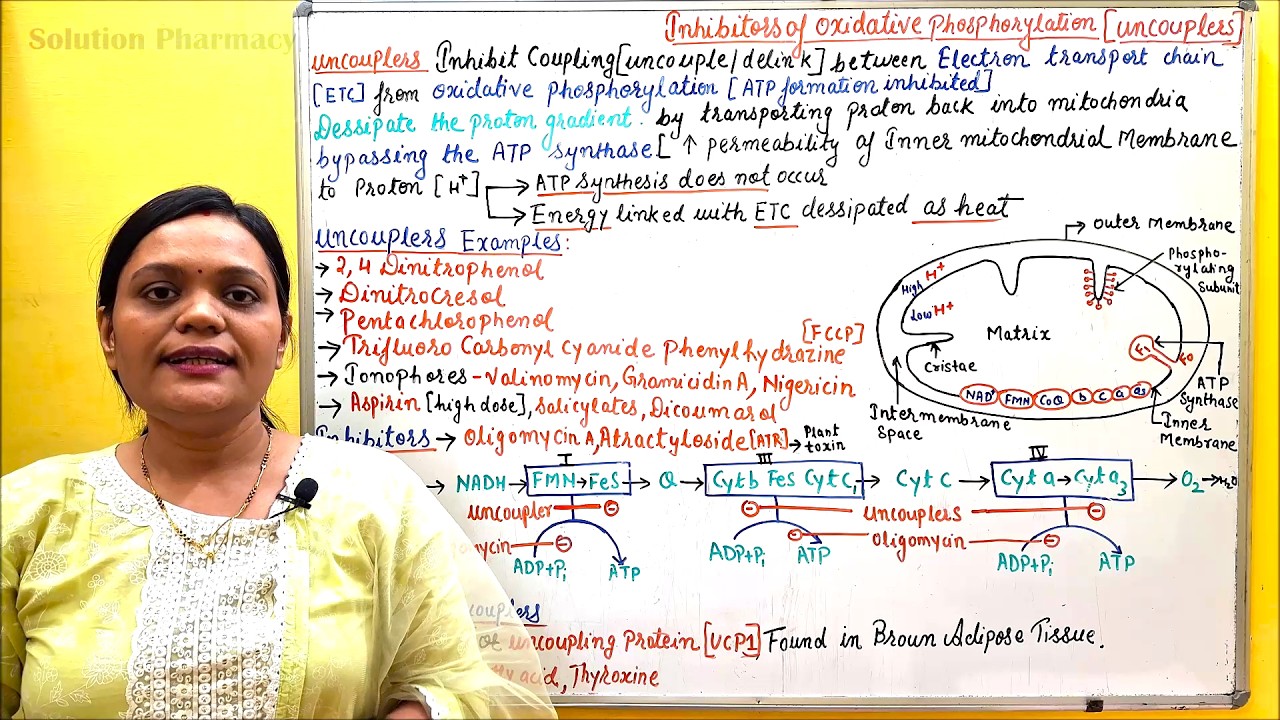 Solution Pharmacy
Inhibitors of Oxidative Phosphorylation [uncouplers]
uncouplers Inhibit Coupling [uncouple/delink] between Electron transport chain
[ETC] from oxidative phosphorylation [ATP formation inhibited]
Dessipate the proton gradient. by transporting proton back into mitochondria
bypassing the ATP synthase [↑ permeability of Inner mitochondrial Membrane
to Proton [H+] → ATP synthesis does not occur
→ Energy linked with ETC dessipated as heat
uncouplers Examples:
→ 2,4 Dinitrophenol
→ Dinitrocresol
→ Pentachlorophenol
→ Trifluoro Carbonyl cyanide Phenylhydrazine [FCCP]
→ Ionophores - Valinomycin, Gramicidin A, Nigericin
→ Aspirin [high dose], Salicylates, Dicoumarol
Inhibitors → Oligomycin A, Atractyloside [ATR] → Plant toxin
Outer Membrane
Phospho-
rylating
Subunit
High H+
Low H+
Matrix
Cristae
F1
F0
NAD+ FMN CoQ b c a a3
ATP
Synthase
Intermembrane
Space
Inner
Membrane
I
III
IV
→ NADH → FMN → FeS → Q → Cyt b FeS Cyt C1 → Cyt C → Cyt a → Cyt a3 → O2 → H2O
uncoupler ⊖ ⊖ uncouplers ⊖
omycin ⊖ ⊖ oligomycin ⊖
ADP+Pi ATP ADP+Pi ATP ADP+Pi ATP
couplers
uncoupling Protein [UCP1] Found in Brown Adipose Tissue.
acid, Thyroxine